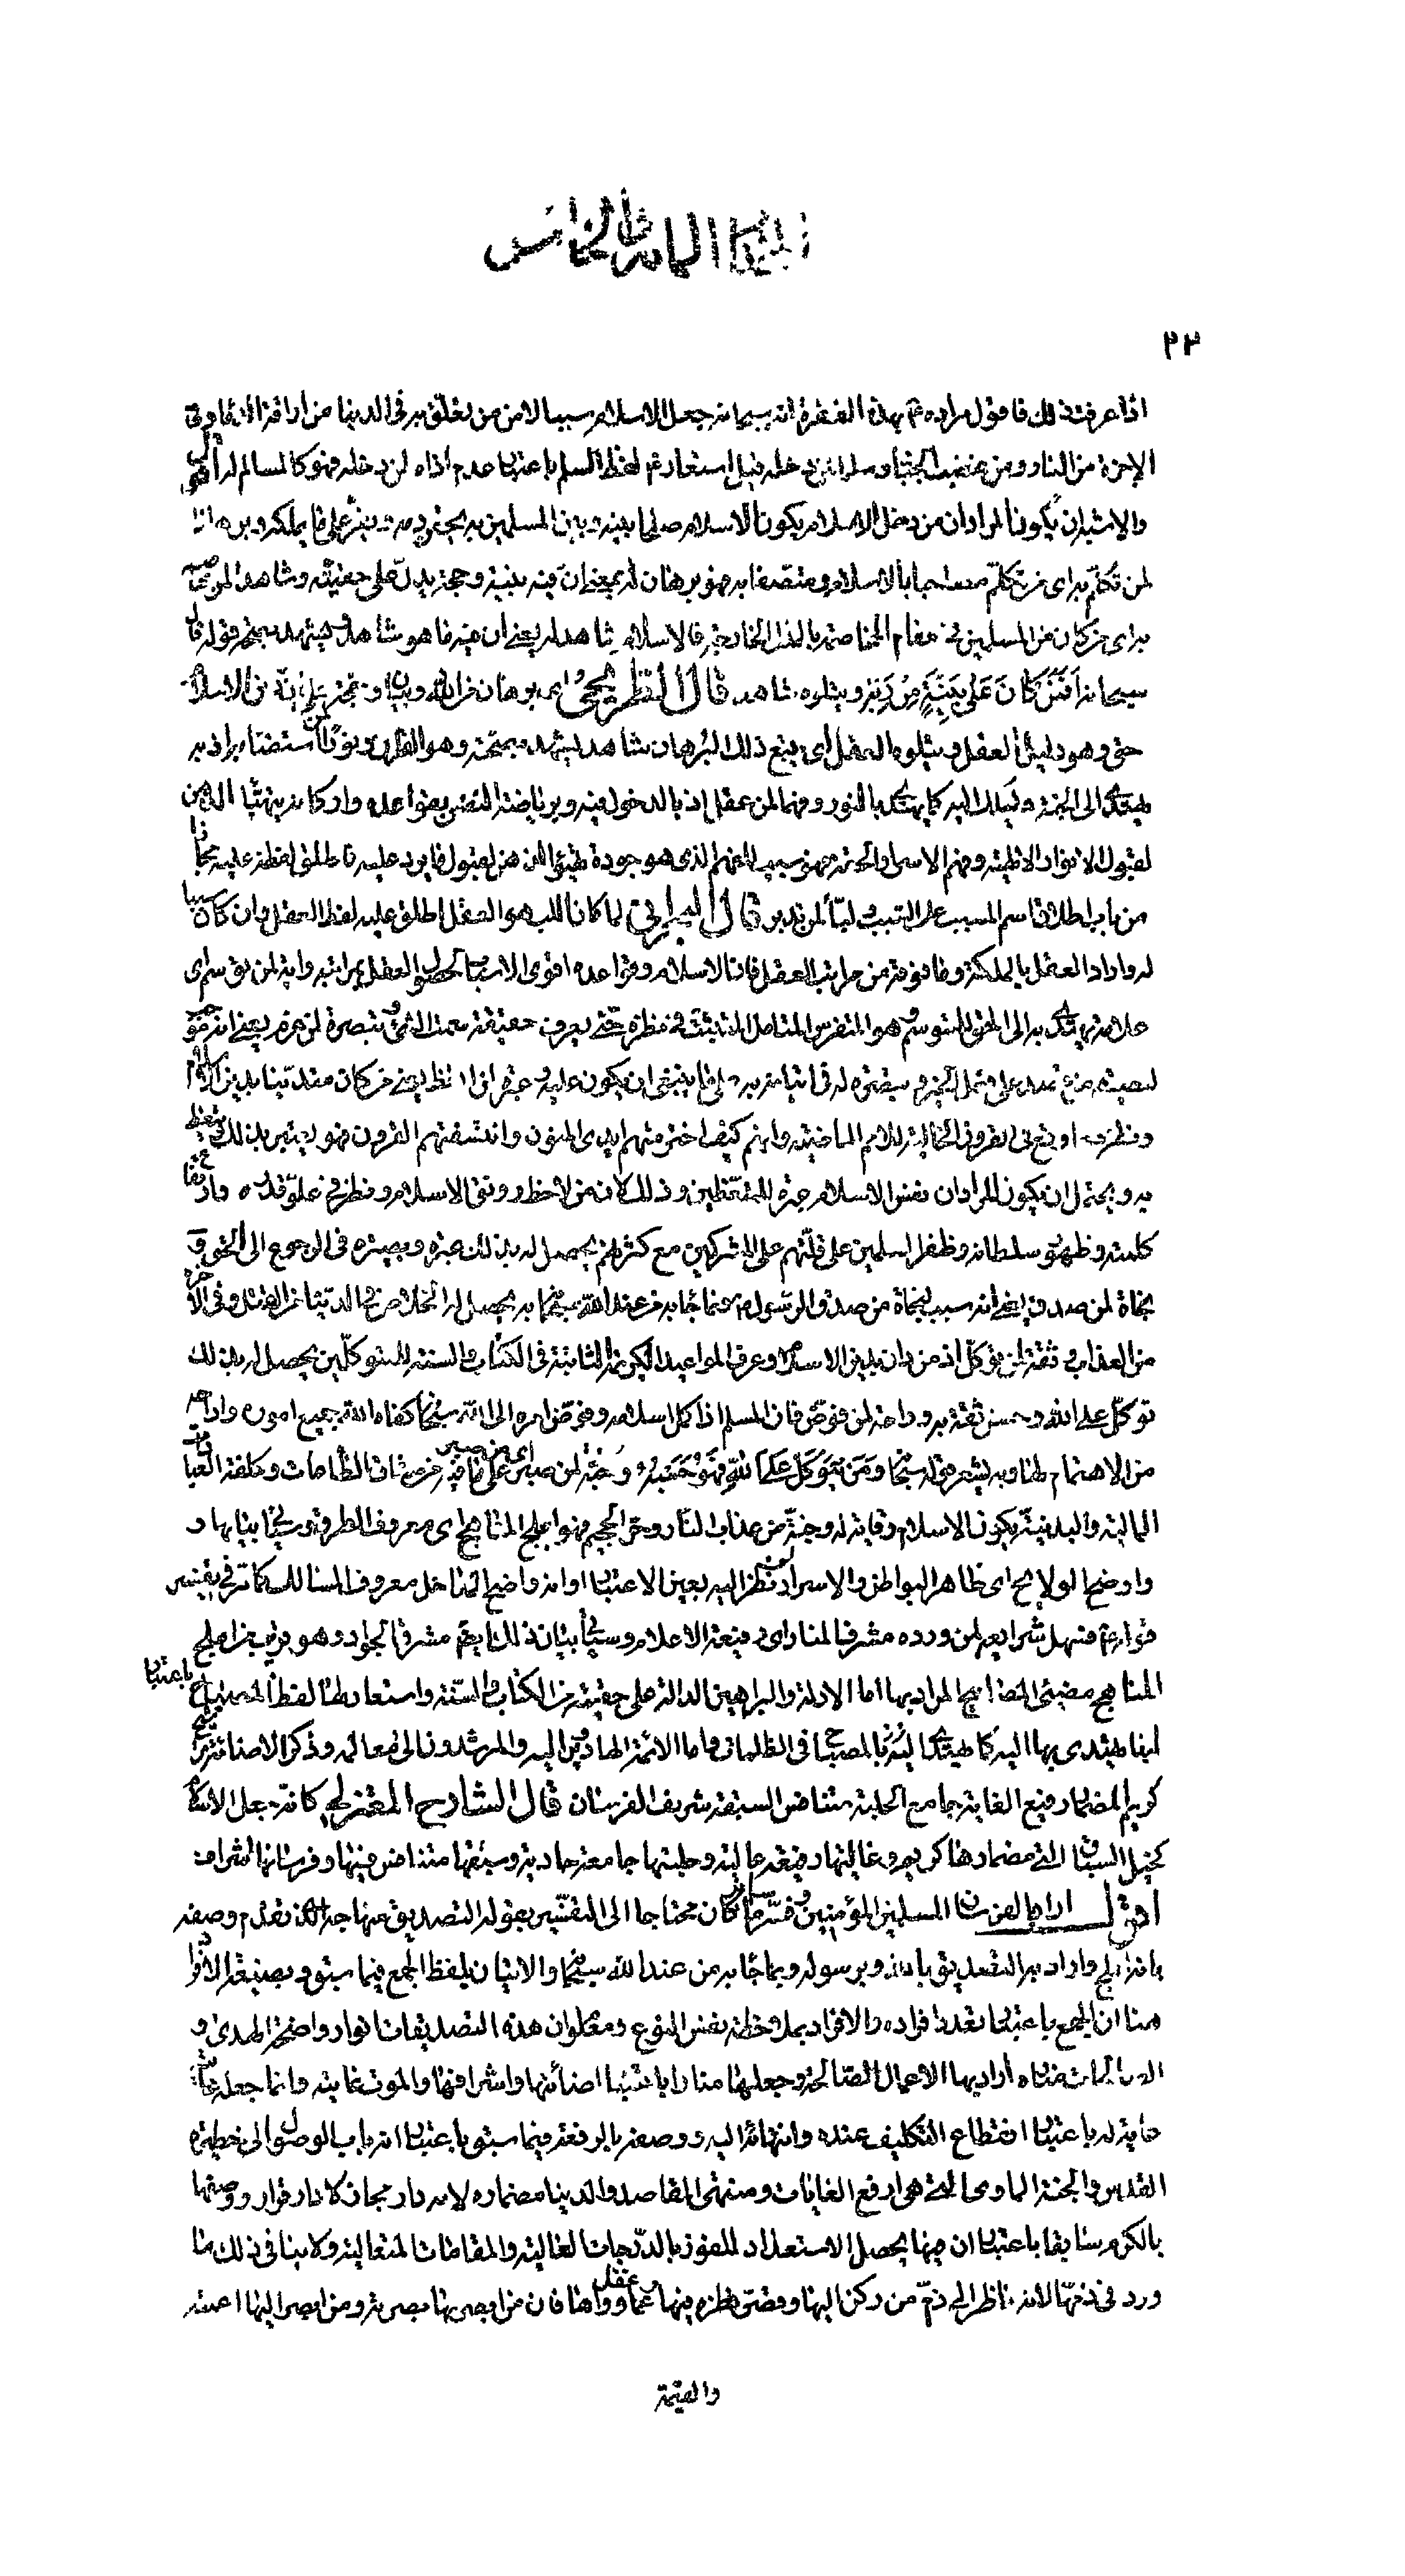 الخطبة المائة والخامس
٢٢
اذا عرفت ذلك فاقول مراده ع بهذه الفقرة انه سبحانه جعل الاسلام سببا لامن من تعلّق به فى الدنيا من اراقة الدماء وفى
الاخرة من النار ومن غضب الجبّار وسلما لمن دخله قيل استعار ع لفظ السلم باعتبار عدم اذاه لمن دخله فهو كالمسالم له أقول
والاشبه ان يكون المراد ان من دخل الاسلام يكون الاسلام صلحا بينه وبين المسلمين به يحقن دمه ويقرّ على ما يملكه وبرهانا
لمن تكلّم به اى من تكلّم مصاحبا بالاسلام ومتصفا به فهو برهان له بمعنى انّ فيه بينة وحجة يدلّ على حقيّته وشاهدا لمن خاصم
به اى من كان من المسلمين فى مقام المخاصمة بالملل الخارجة فالاسلام شاهد له يعنى ان فيه ما هو شاهد يشهد بصحّة قوله قال
سبحانه أَفَمَنْ كَانَ عَلى بَيِّنَةٍ مِنْ رَبِّهِ ويتلوه شاهد قال الطبرسى اى برهان من الله وبيان او حجّة على انّ دين الاسلام
حق وهو دليل العقل ويتلوه العقل اى يتبع ذلك البرهان شاهد يشهد بصحّته وهو القرآن ونورا لمن استضاء به اذ به
يهتدى الى الجنة ويسلك اليه كما يهتدى بالنور وفهما لمن عقل اذ بالدخول فيه وبرياضة النفس بقواعده واركانه يتهيّأ الذهن
لقبول الانوار الالهيّة وفهم الاسرار الحقة فهو سبب للفهم الذى هو جودة تهيّؤ الذهن لقبول ما يرد عليه فاطلق لفظه عليه مجازا
من باب اطلاق اسم المسبب على السبب ولبّا لمن تدبر قال البحرانى لما كان اللب هو العقل اطلق عليه لفظ العقل وان كان سببا
له واراد العقل بالملكة وما فوقه من مراتب العقل فان الاسلام وقواعده اقوى الاسباب لحصول العقل بمراتبه واية لمن توسم اى
علامة يهتدى به الى الحق المتوسم وهو المتفرس المتامل المتثبت فى نظره حتّى يعرف حقيقة سمت الشئ وتبصرة لمن عزم يعنى انه موجب
لبصيرة من عزم على فعل الخير وتبصرة له فى اتيانه به على ما ينبغى ان يكون عليه وعبرة لمن اتّعظ يعنى من كان متديّنا بدين الاسلام
ونظر ما وقع فى القرون الخالية للامم الماضية وانهم كيف اخترمتهم ايدى المنون وانتسفتهم القرون فهو يعتبر بذلك ويتعظ
به ويحتمل ان يكون المراد ان نفس الاسلام عبرة للمتّعظين وذلك لانه من لاحظ رونق الاسلام ونظر فى علوّ قدره وارتفاع
كلمته وظهور سلطانه وظفر المسلمين على قلّتهم على المشركين مع كثرتهم يحصل له بذلك عبرة وبصيرة فى الرجوع الى الحق و
نجاة لمن صدق يعنى انه سبب لنجاة من صدق الرسول ص فيما جاء به من عند الله سبحانه به يحصل له الخلاص فى الدنيا من القتل وفى الاخرة
من العذاب وثقة لمن توكّل اذ من دان بدين الاسلام وعرف المواعيد الكريمة الثابتة فى الكتاب والسنة للمتوكّلين يحصل له بذلك
توكّل على الله وحسن ثقة به وراحة لمن فوّض فان المسلم اذا كمل اسلامه وفوّض امره الى الله سبحانه كفاه الله جميع اموره واراحه
من الاهتمام بها وبه يشعر قوله سبحانه وَمَنْ يَتَوَكَّلْ عَلَى اللهِ فَهُوَ حَسْبُهُ وجُنّة لمن صبر اى من صبر على ما فيه من مشاق الطاعات وكلفة العبادات
المالية والبدنيّة يكون الاسلام وقاية له وجنّة من عذاب النّار وحرّ الجحيم فهو ابلج المناهج اى معروف الطرق وسيجئ بيانها و
واوضح الولايج اى ظاهر البواطن والاسرار لمن نظر اليه بعين الاعتبار او انه واضح المداخل معروف المسالك كما مرّ فى تفسير
قوله ع فسهل شرايعه لمن ورده مشرف المنار اى مرتفعة الاعلام وسيجئ بيان ذلك ايضا مشرق الجواد وهو قريب من ابلج
المناهج مضيئ المصابيح المراد بها اما الادلة والبراهين الدالة على حقيّته من الكتاب والسنّة واستعار لها لفظ المصابيح باعتبار
انها يهتدى بها اليه كما يهتدى بالمصباح فى الظلمات واما الائمة الهادون اليه والمرشدون الى معالمه وذكر الاضائة ترشيح
كريم المضمار رفيع الغاية جامع الحلبة متنافس السبقة شريف الفرسان قال الشارح المعتزلى كانّه جعل الاسلام
كخيل السباق التى مضمارها كريم وغايتها رفيعة عالية وحلبتها جامعة حاوية وسبقتها متنافس فيها وفرسانها اشراف
اقول اراد بالفرسان المسلمين المؤمنين وفسّر ما كان محتاجا الى التفسير بقوله التصديق منهاجه الذى تقدم وصفه
بانه ابلج واراد به التصديق بالله وبرسوله وبما جاء به من عند الله سبحانه والاتيان بلفظ الجمع فيما سبق وبصيغة الافراد
هنا ان الجمع باعتبار تعدد افراده والافراد بملاحظة نفس النوع ومعلوم ان هذه التصديقات انوار واضحة الهدى و
الصالحات مناره أراد بها الاعمال الصّالحة وجعلها منارا باعتبار اضائتها واشرافها والموت غايته وانما جعله
غاية له باعتبار انقطاع التكليف عنده وانتهائه اليه ووصفه بالرفعة فيما سبق باعتبار انه باب الوصول الى حظيرة
القدس والجنة الماوى التى هى ارفع الغايات ومنتهى المقاصد والدنيا مضماره لانه دار مجاز لا دار قرار ووصفها
بالكرم سابقا باعتبار ان فيها يحصل الاستعداد للفوز بالدّرجات العالية والمقامات المتعالية ولا ينافى ذلك ما
ورد فى ذمّها لانه ناظر الى ذمّ من ركن اليها وقصّر نظره فيها وغفل عما وراها فان من ابصر بها بصرته ومن ابصر اليها اعمته
والقيمة